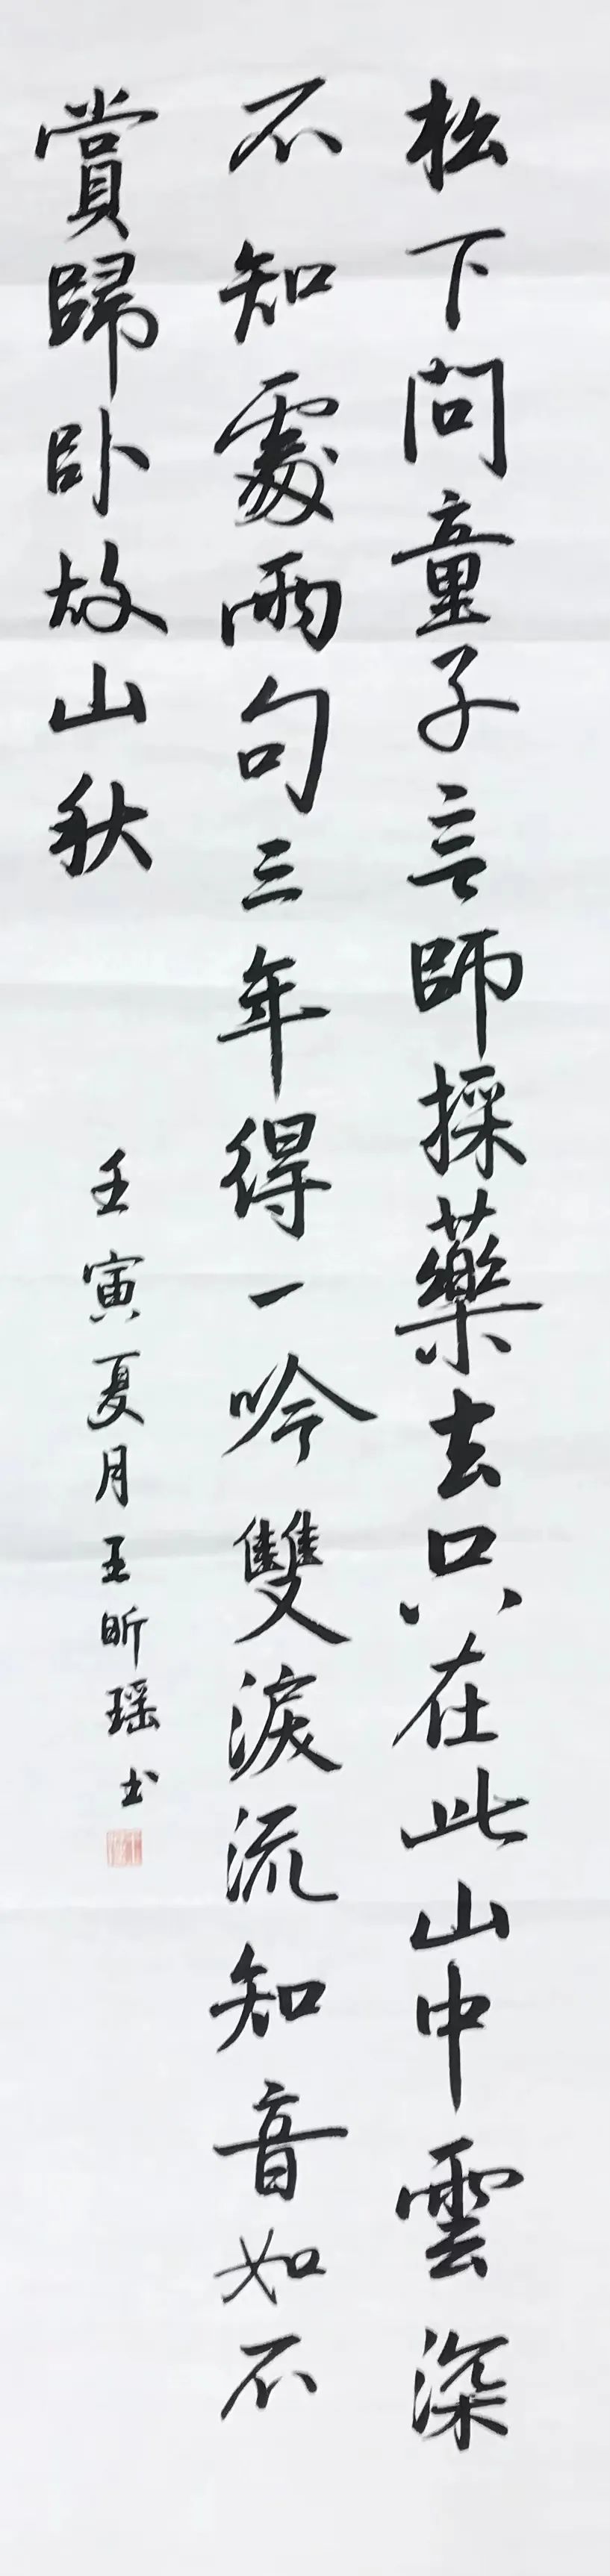 松下問童子言師採藥去只在此山中雲深
不知處兩句三年得一吟雙淚流知音如不
賞歸卧故山秋
壬寅夏月王昕瑶书